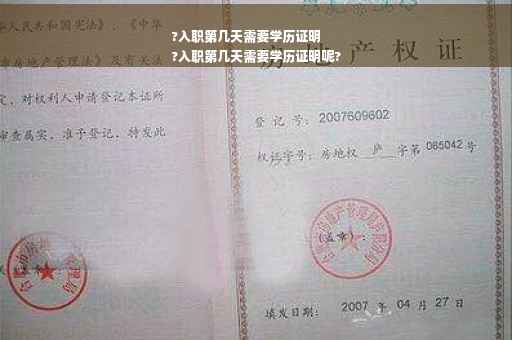 ?入职第几天需要学历证明
?入职第几天需要学历证明呢?
人民共和国宪法》、《中华
房地产管理法》及有关法
定，对权利人申请登记本证所
审查属实，准予登记，特发此
产权证
登记号：2007609602
权证字号：房地权 庐 字第 065042 号
(盖章)：
填发日期： 2007 年 04 月 27 日